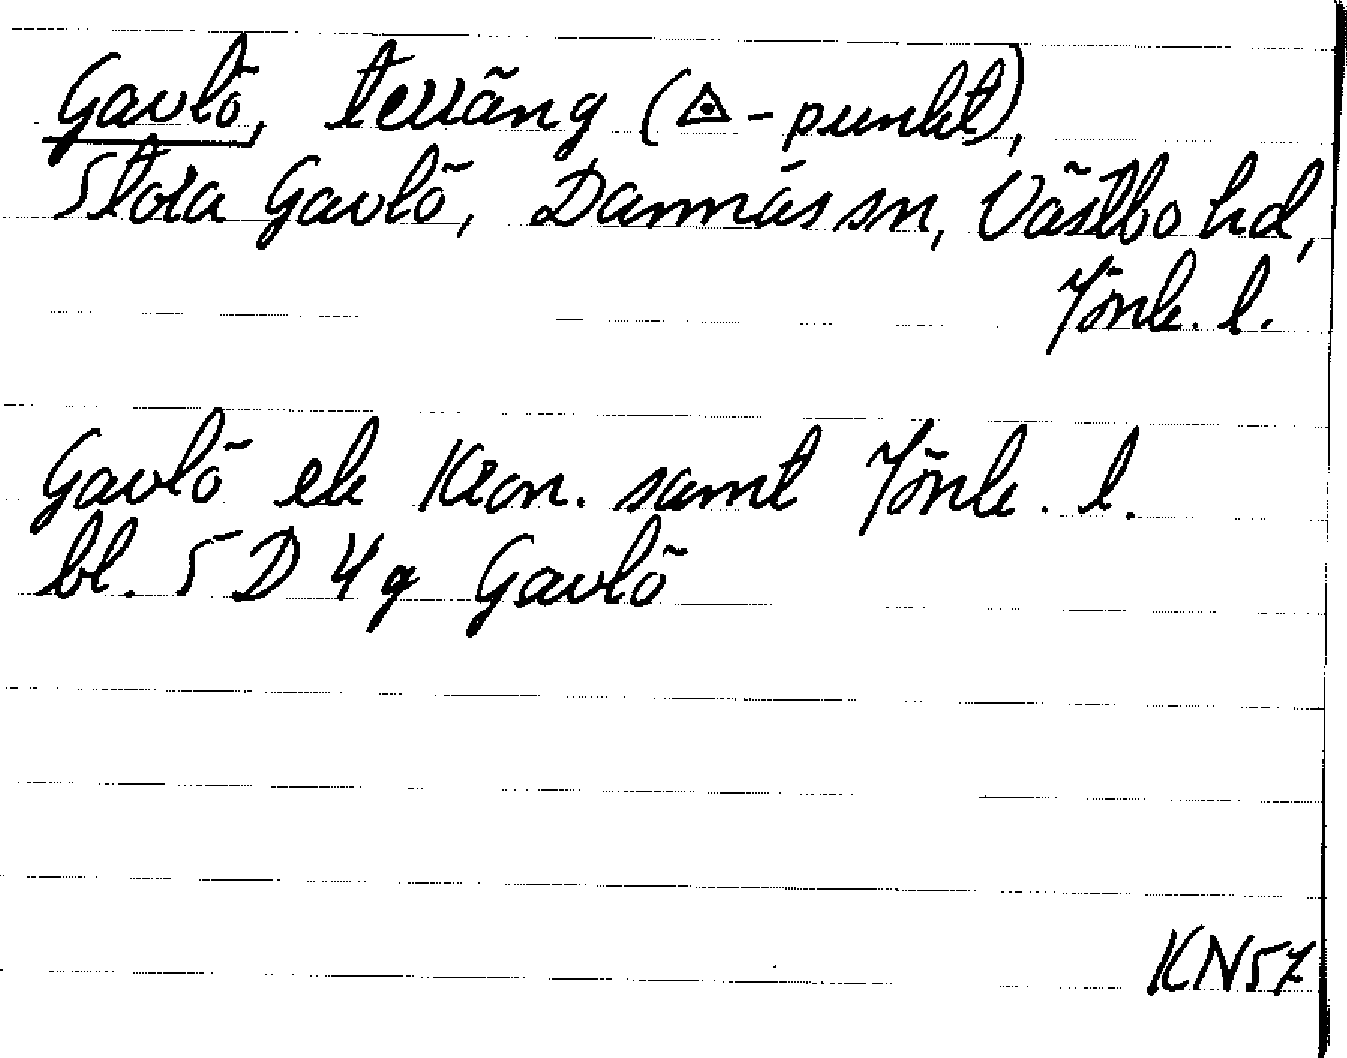 Gavlö, terräng (◬-punkt),
Stora Gavlö, Dannäs sn, Västbo hd,
Jönk. l.
Gavlö ek Kron. samt Jönk. l.
bl. 5 D 4 g Gavlö
KN57